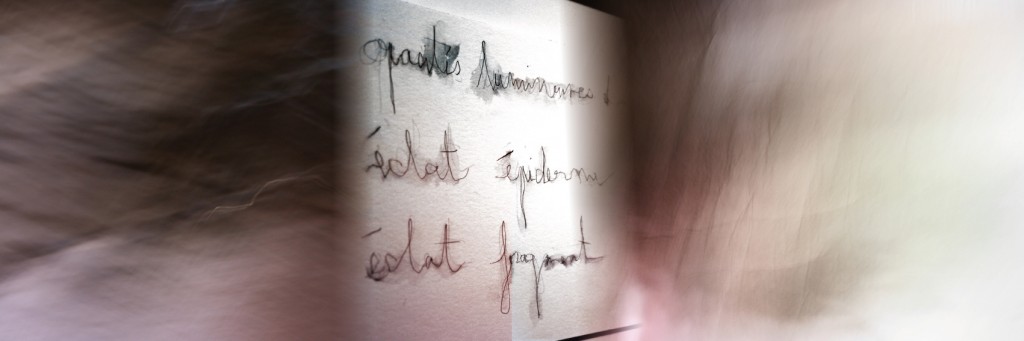 opacités lumineuses
éclat
éclat fragment